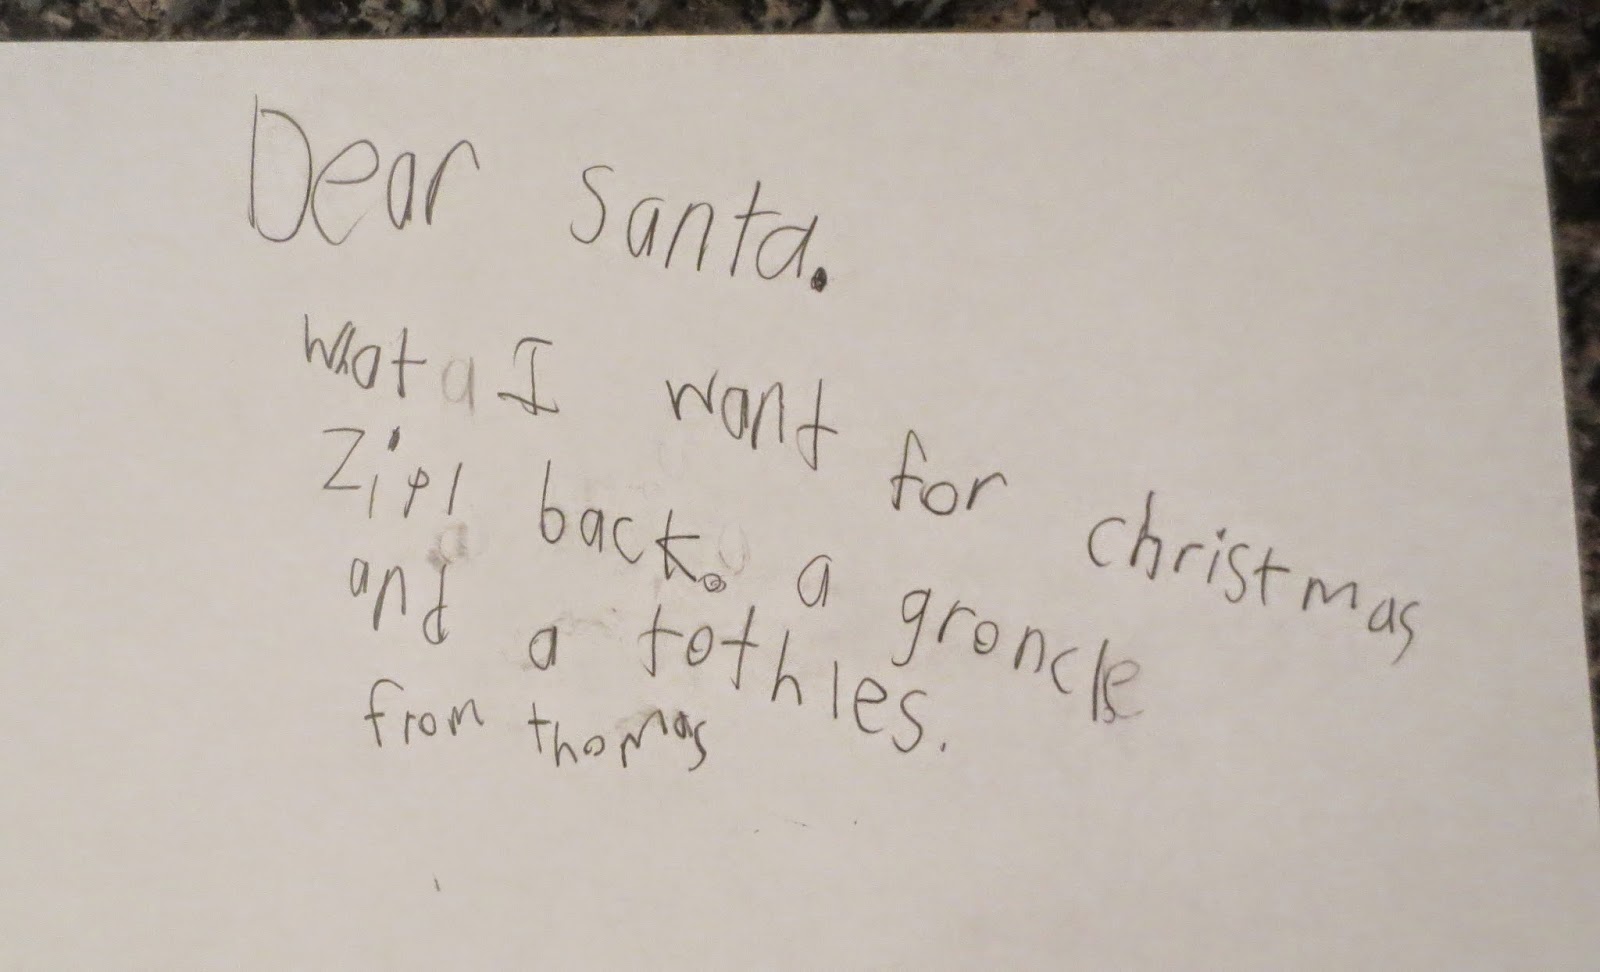 Dear Santa.
What a I want for christmas
Zipl back. a groncle
and a tothles.
from thomas